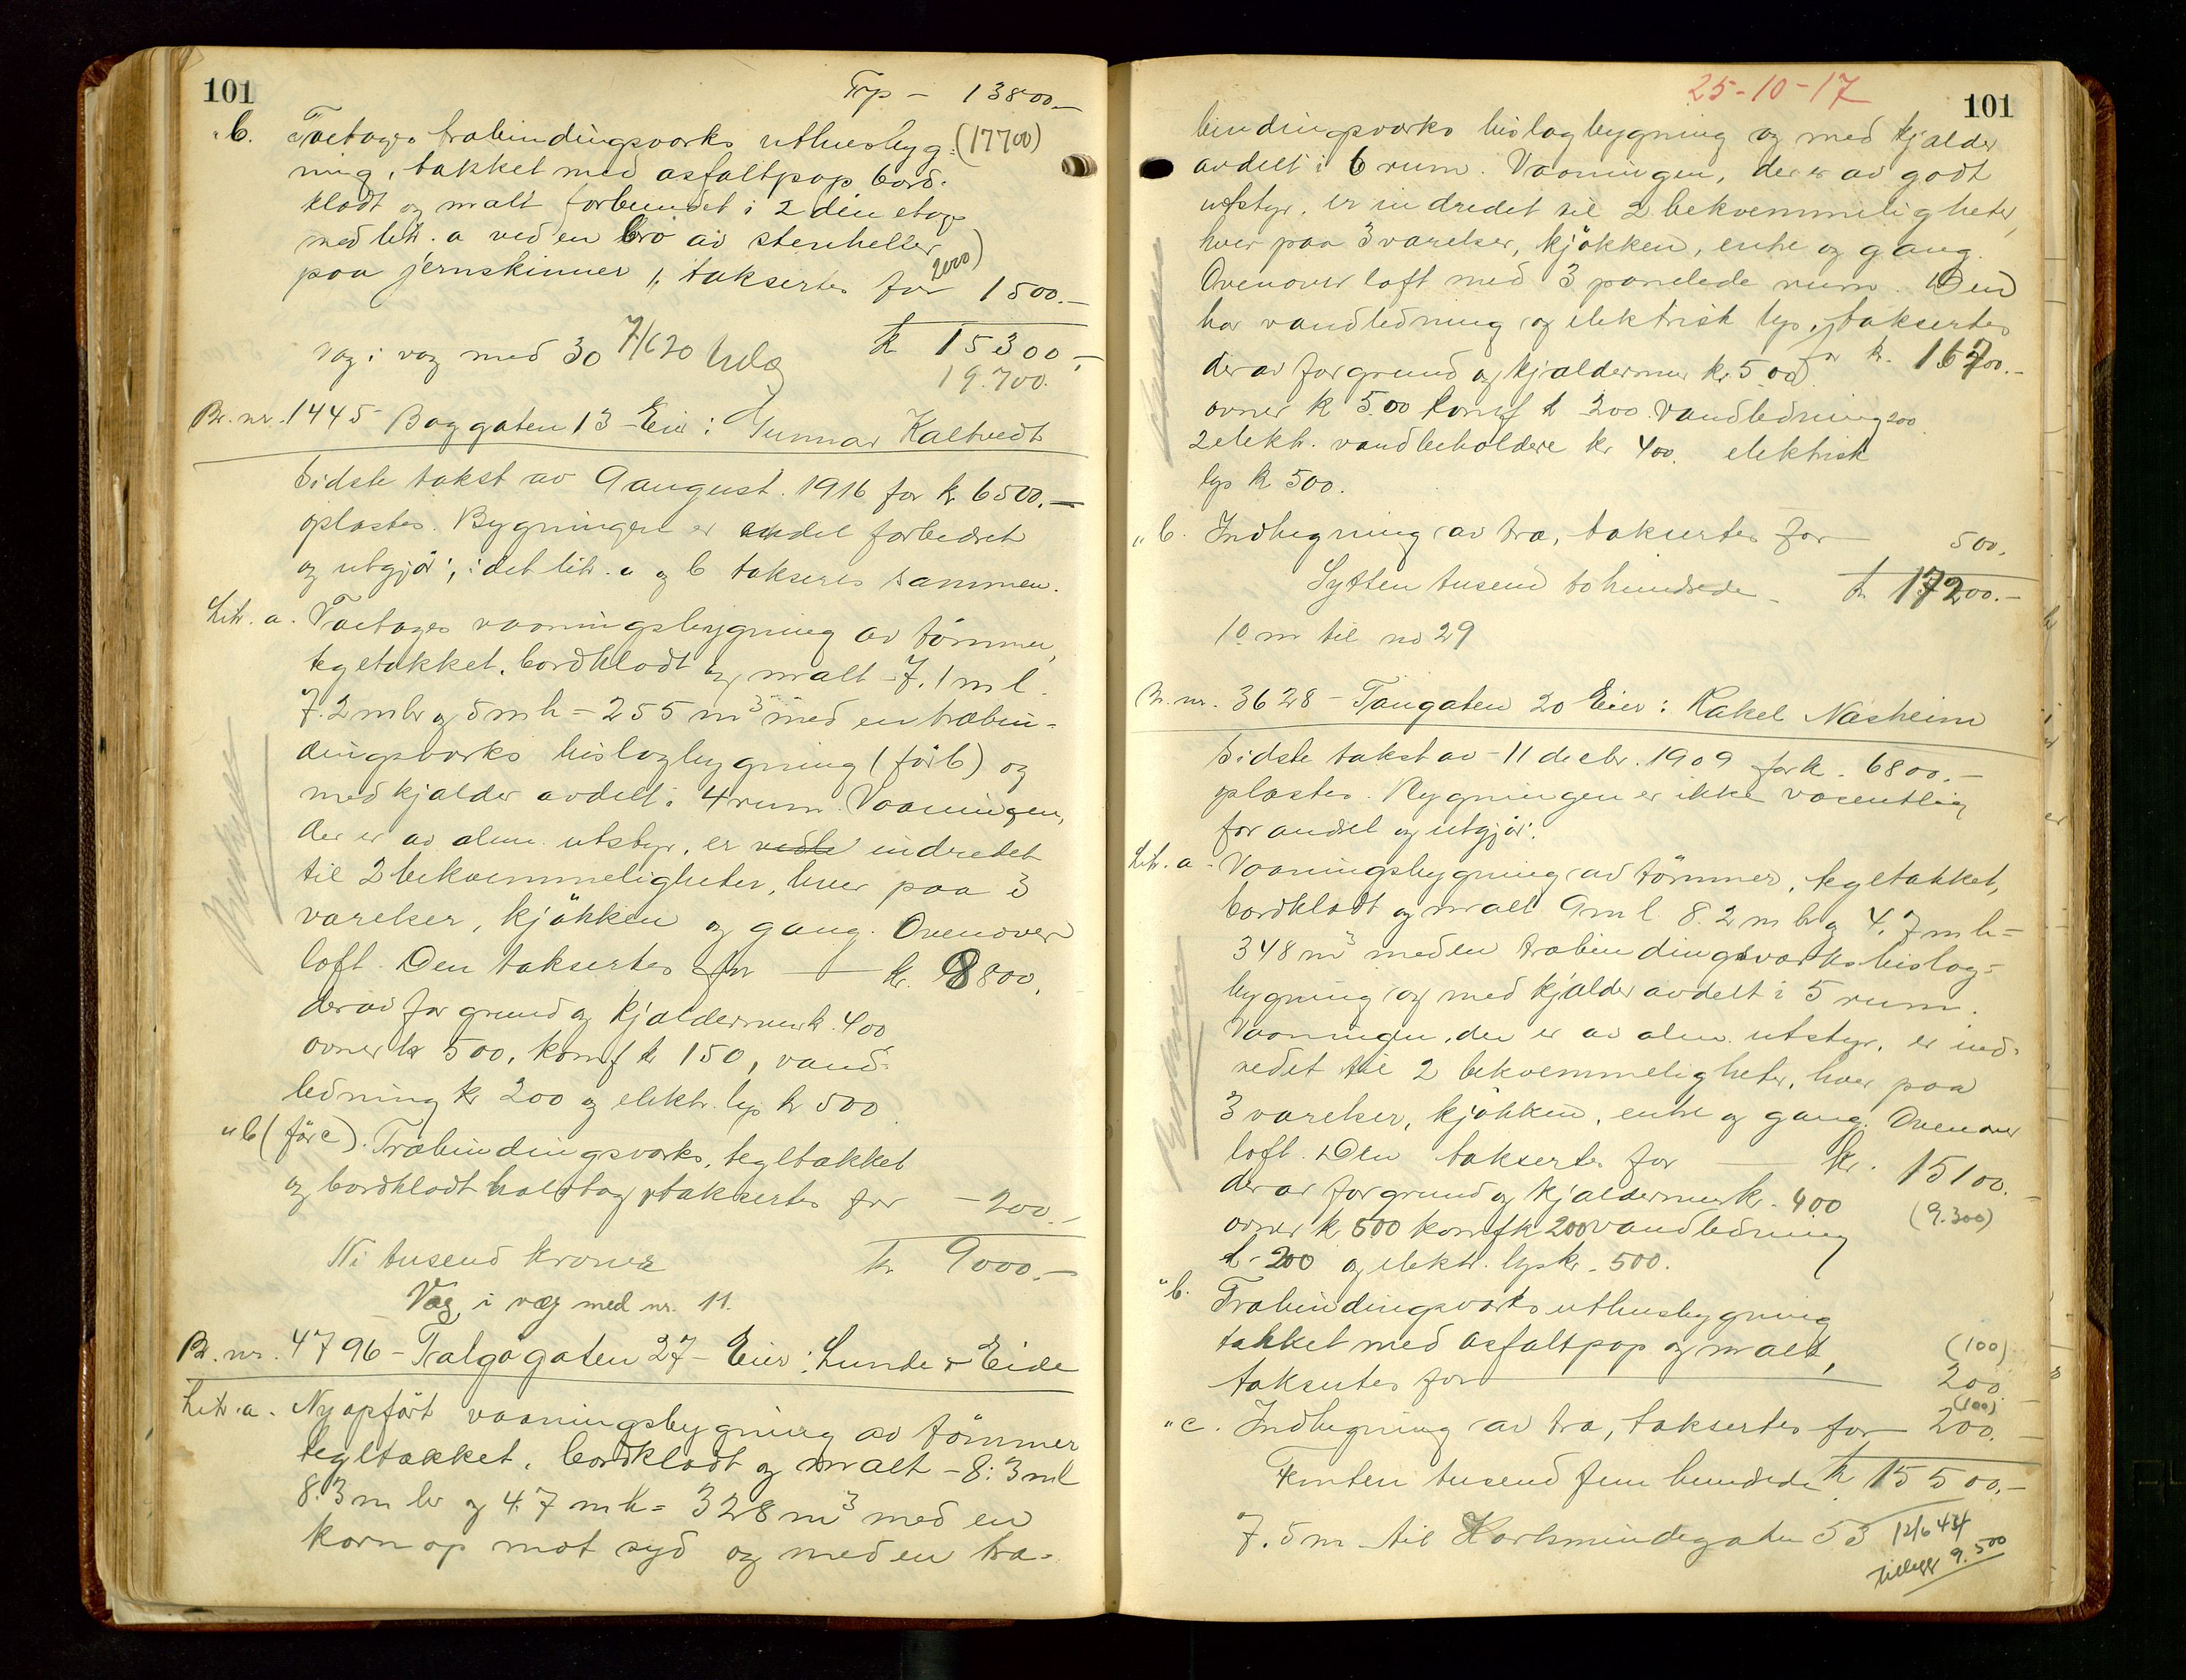 101
Trp - 13800.-
"b. Toetages træbindingsværks uthusbyg- (17700)
ning, takket med asfaltpap, bord-
klædt og malt forbundet i 2 den etage
med litr. a ved en bro av stenheller
paa jernskinner, taksertes for 1500.-
2000)
kr 15300,-
Væg i væg med 30 7/6 20
19.700.
Br. nr. 1445 Baggaten 13 - Eier: Gunnar Kaltvedt
Sidste takst av 9 august. 1916 for kr 6500.-
oplæstes. Bygningen er endel forbedret
og utgjør; idet litr. a og b takseres sammen.
Litr. a. Toetages vaaningsbygning av tømmer,
tegltækket, bordklædt og malt - 7.1 m l.
7.2 m br og 5 m h = 255 m³ med en træbin-
dingsværks bislagbygning (før b) og
med kjælder avdelt i 4 rum. Vaaningen,
der er av alm. utstyr, er indredet
til 2 bekvemmeligheter, hver paa 3
værelser, kjøkken og gang. Ovenover
loft. Den taksertes for — kr. 8800.
derav for grund og kjældermur kr. 400
ovner kr 500, komf kr 150, vand-
ledning kr 200 og elektr. lys kr 500
"b (før c). Træbindingsværks, tegltækket
og bordklædt halvtag, taksertes for - 200.-
Ni tusend kroner kr 9000.-
Væg i væg med nr. 11.
Br. nr. 4796 - Tralgøgaten 27 - Eier: Lunde & Eide
Litr. a. Nyopført vaaningsbygning av tømmer
tegltækket, bordklædt og malt - 8.3 m l
8.3 m br og 4.7 m h = 328 m³ med en
karnap mot syd og med en træ-
25-10-17
101
bindingsværks bislagbygning og med kjælder
avdelt i 6 rum. Vaaningen, der er av godt
utstyr, er indredet til 2 bekvemmeligheter,
hver paa 3 værelser, kjøkken, entre og gang.
Ovenover loft med 3 panelede rum. Den
har vandledning og elektrisk lys, taksertes
for kr. 16700.-
derav for grund og kjældermur kr. 500
ovner kr 500 komf kr 200. vandledning 200
2 elektr. vandbeholdere kr 400. elektrisk
lys kr 500.
"b. Indhegning av træ, taksertes for 500.
Sytten tusend to hundrede - kr 17200.-
10 m til no 29
Br. nr. 3628 - Tangaten 20 Eier: Rakel Næsheim
Sidste takst av 11 decbr. 1909 for kr. 6800.-
oplæstes. Bygningen er ikke væsentlig
forandret og utgjør:
Litr. a. Vaaningsbygning av tømmer, tegltækket,
bordklædt og malt 9 m l. 8.2 m br og 4.7 m h =
348 m³ med en træbindingsværks bislag-
bygning og med kjælder avdelt i 5 rum.
Vaaningen, der er av alm. utstyr, er ind-
redet til 2 bekvemmeligheter, hver paa
3 værelser, kjøkken, entre og gang. Ovenover
loft. Den taksertes for — kr. 15100.-
derav for grund og kjældermur kr. 400
(9.300)
ovner kr 500 komf kr 200 vandledning
kr 200 og elektr. lys kr. 500.
"b. Træbindingsværks uthusbygning
takket med asfaltpap og malt, (100)
taksertes for 200.-
(100)
"c. Indhegning av træ, taksertes for 200.-
Femten tusend fem hundrede kr 15500.-
7.5 m til Karlsmindegaten 53 12/6 44
tillegg 9.500